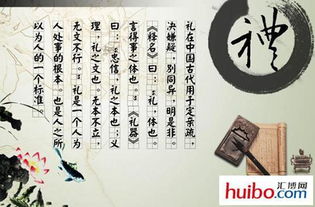 禮
礼在中国古代用于定亲疏，
决嫌疑，别同异，明是非。
《释名》曰：“礼，体也。
言得事之体也。”《礼器》
曰：“忠信，礼之本也；义
理，礼之文也。无本不立，
无文不行。”礼是一个人为
人处事的根本。也是人之所
以为人的一个标准。
huibo.com 汇博网